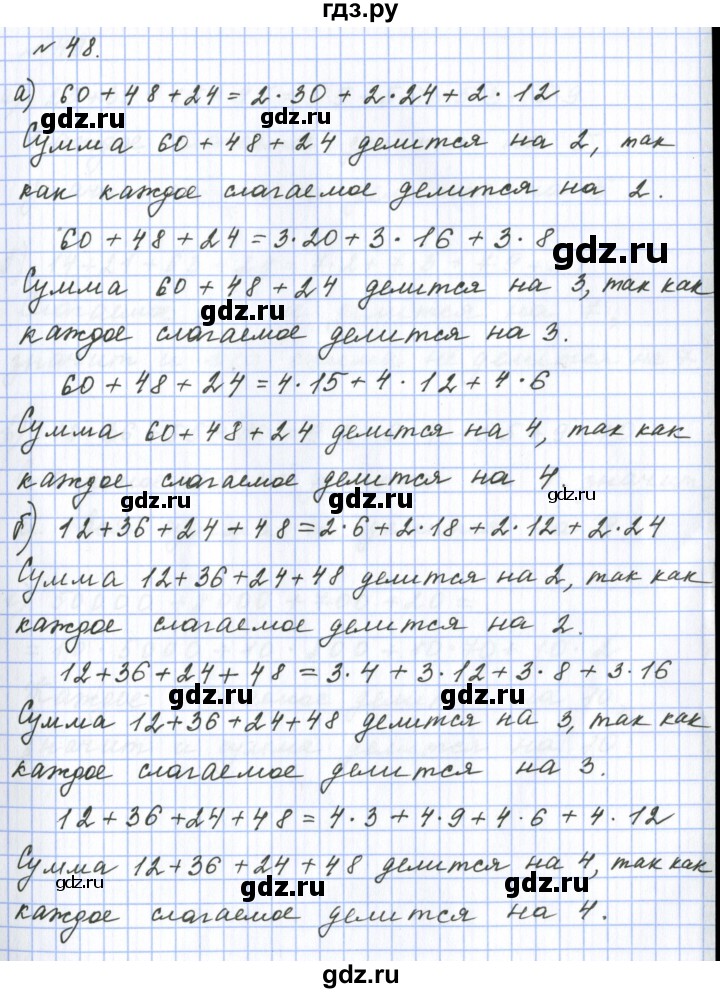 гдз.ру
№ 48.
а) 60 + 48 + 24 = 2 · 30 + 2 · 24 + 2 · 12
gdz.ru gdz.ru
Сумма 60 + 48 + 24 делится на 2, так
как каждое слагаемое делится на 2.
60 + 48 + 24 = 3 · 20 + 3 · 16 + 3 · 8
gdz.ru
Сумма 60 + 48 + 24 делится на 3, так как
gdz.ru
каждое слагаемое делится на 3.
60 + 48 + 24 = 4 · 15 + 4 · 12 + 4 · 6
Сумма 60 + 48 + 24 делится на 4, так как
каждое слагаемое делится на 4.
gdz.ru gdz.ru gdz.ru
б) 12 + 36 + 24 + 48 = 2 · 6 + 2 · 18 + 2 · 12 + 2 · 24
Сумма 12 + 36 + 24 + 48 делится на 2, так как
каждое слагаемое делится на 2.
12 + 36 + 24 + 48 = 3 · 4 + 3 · 12 + 3 · 8 + 3 · 16
gdz.ru gdz.ru
Сумма 12 + 36 + 24 + 48 делится на 3, так как
каждое слагаемое делится на 3.
12 + 36 + 24 + 48 = 4 · 3 + 4 · 9 + 4 · 6 + 4 · 12
Сумма 12 + 36 + 24 + 48 делится на 4, так как
gdz.ru gdz.ru gdz.ru
каждое слагаемое делится на 4.
gdz.ru